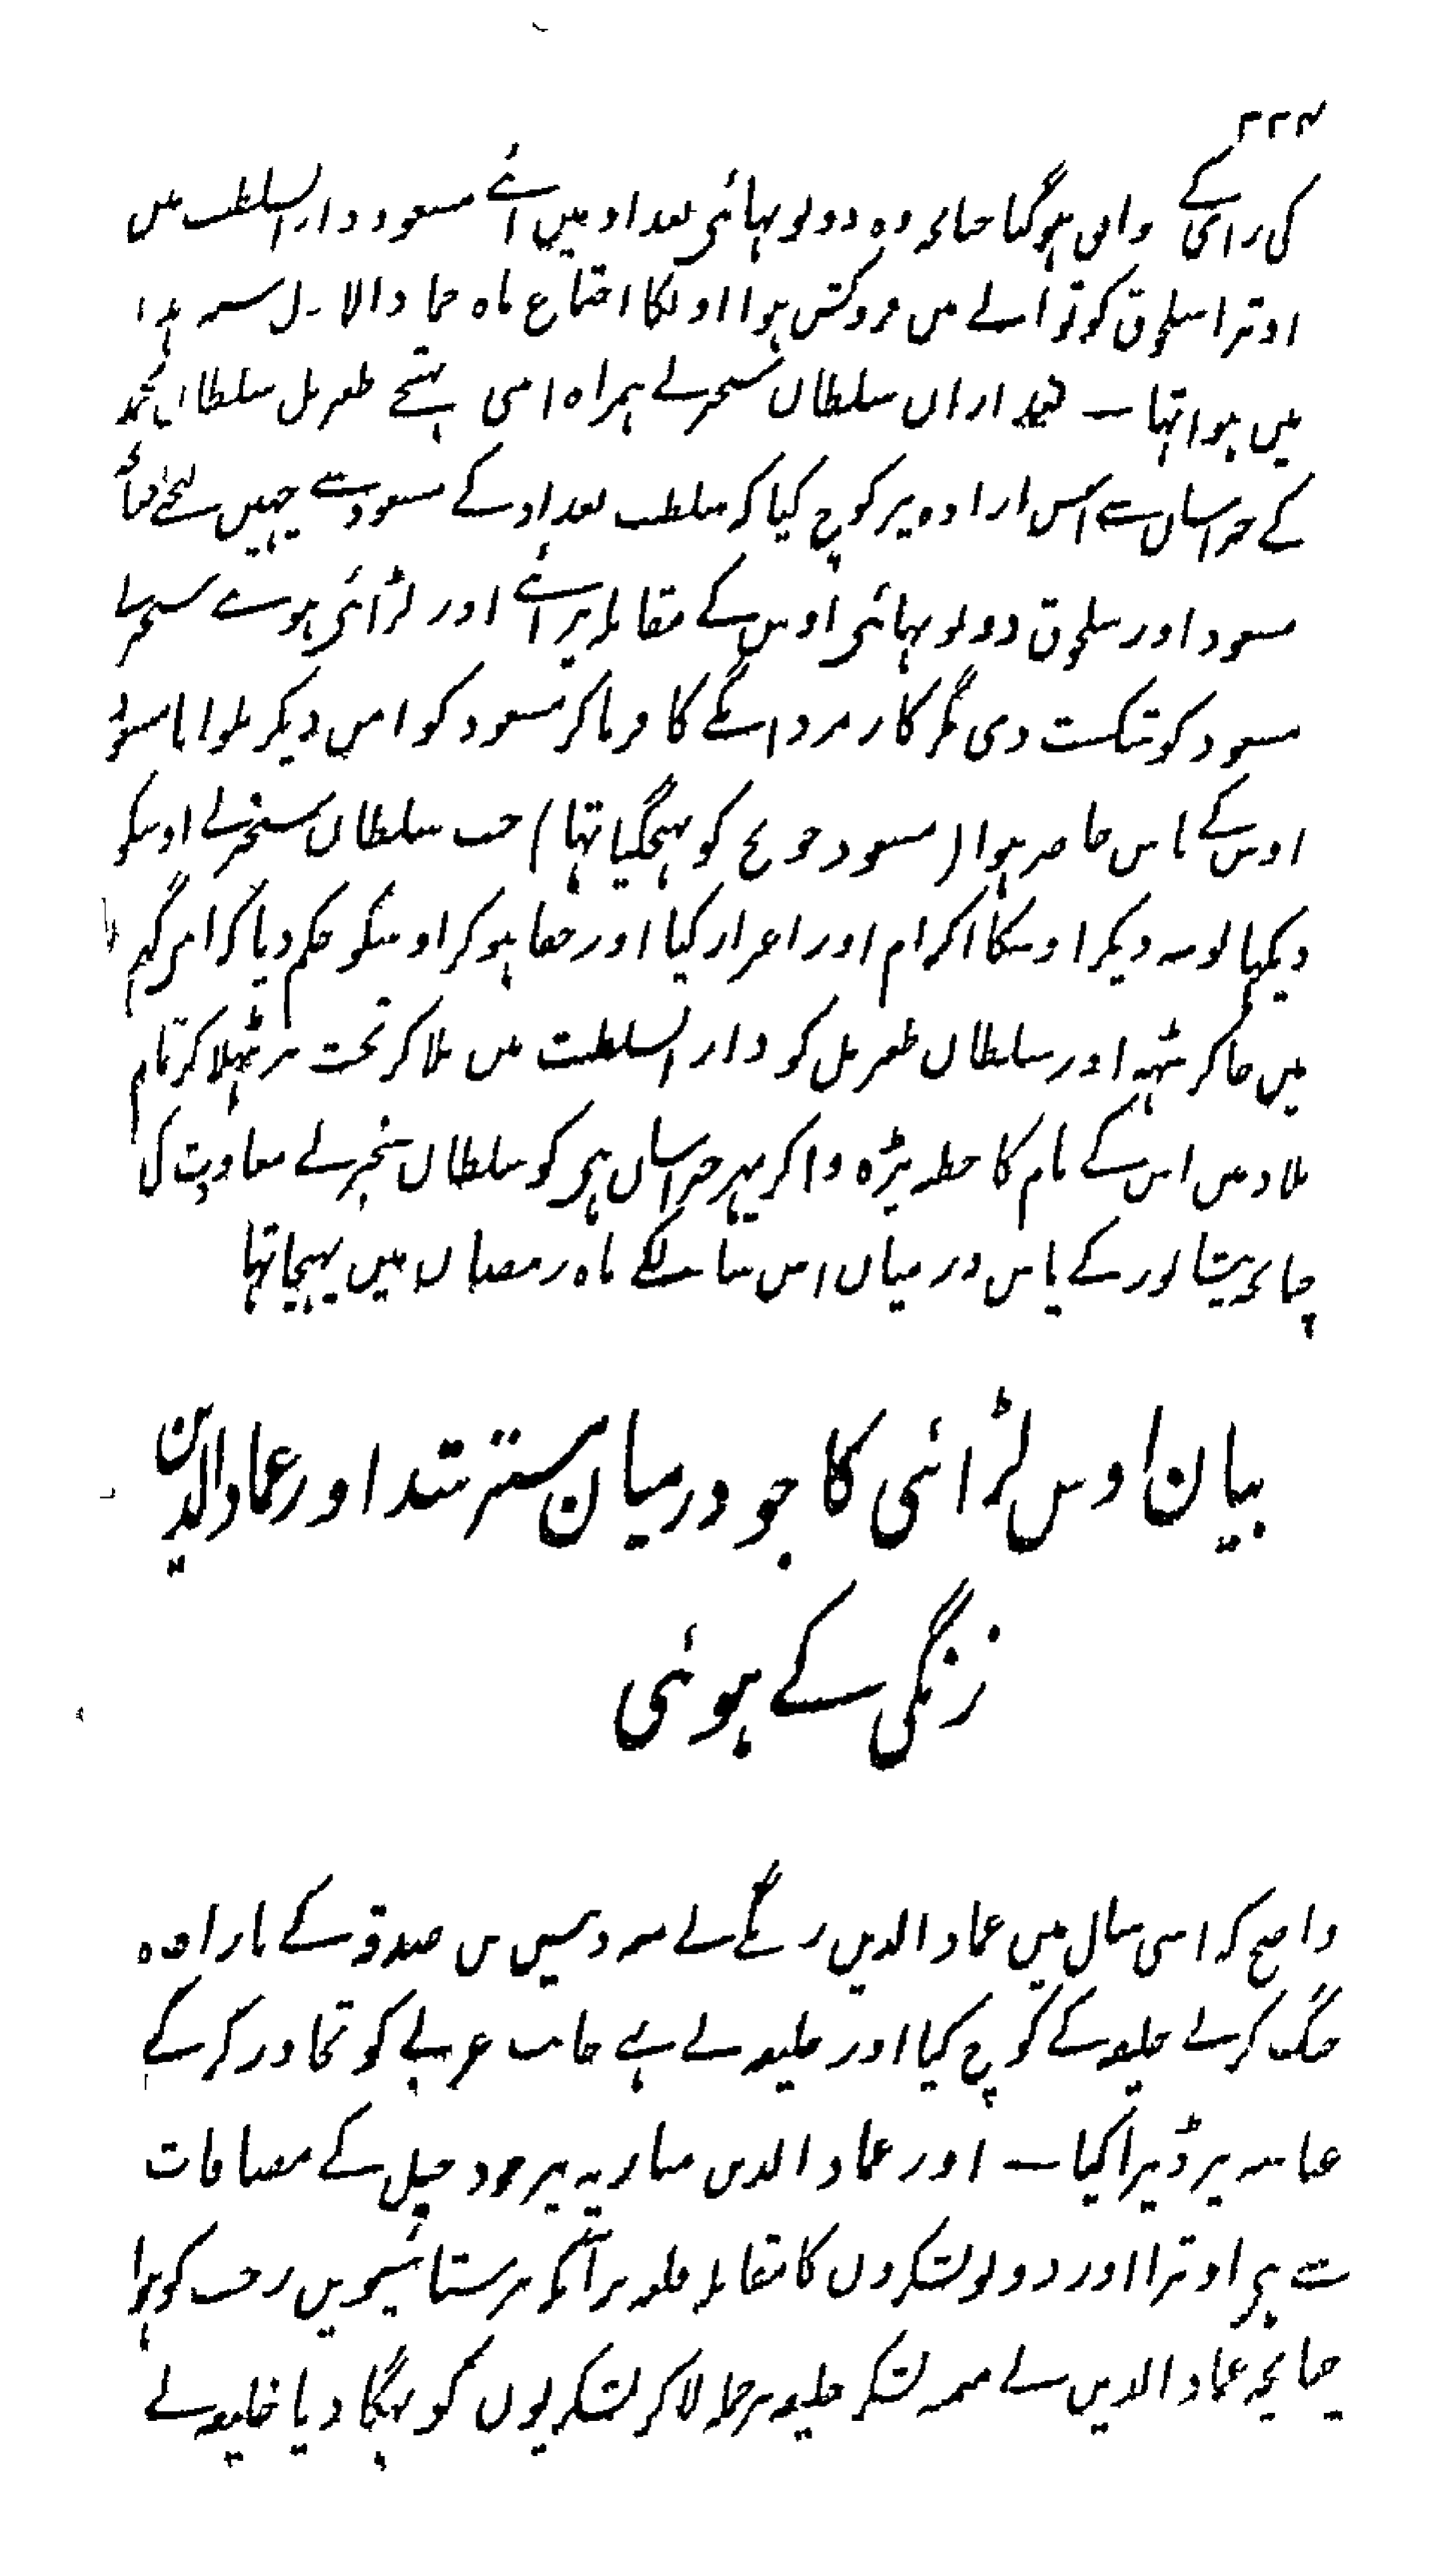 ۲۲۴
کی رائی کے واپس ہو گیا چنانچہ وہ دونو بہائی بغداد میں آئے مسعود دار السلطنت میں
اوترا سلجوق کوتوالے میں فروکش ہوا اونکا اجتماع ماہ جمادالاول سنہ ہذا
میں ہوا تہا ـ بعد ازاں سلطان سنجر نے ہمراہ اپنی بہتیجے طغرل سلطان محمد
کے خراسان سے اس ارادہ پر کوچ کیا کہ سلطنت بغداد کے مسعود سے چہین لیجئے
مسعود اور سلجوق دونو بہائی اوس کے مقابلہ پر آئے اور لڑائی ہوے سنجر نے
مسعود کو شکست دی مگر کار مردانگے کا فرما کر مسعود کو امن دیکر بلوایا مسعود
اوس کے پاس حاضر ہوا (مسعود خونج کو پہنچ گیا تہا) جب سلطان سنجر نے اوسکو
دیکہا بوسہ دیکر اوسکا اکرام اور اعزاز کیا اور خفا ہو کر اوسکو حکم دیا کہ امر گنجہ
میں جا کر ٹہہر اور سلطان طغرل کو دار السلطنت میں بلا کر تخت پر بٹہلا کر تمام
بلاد میں اس کے نام کا خطبہ پڑہ وا کر پہر خراسان ہی کو سلطان سنجر نے معاودت کی
چنانچہ نیشاپور کے پاس درمیان اس سال کے ماہ رمضان میں پہنچا تہا
بیان اوس لڑائی کا جو درمیان مسترشد اور عماد الدین
زنگی کے ہوئی
واضح کہ اسی سال میں عماد الدین زنگے نے معہ دبیس بن صدقہ کے بارادہ
جنگ کرنے خلیفہ کے کوچ کیا اور خلیفہ نے بہی جانب غربی کو تجاوز کر کے
عباسہ پر ڈیرا کیا ـ اور عماد الدین مناریہ پر جو دجیل کے مضافات
سے ہی اوترا اور دونو لشکروں کا مقابلہ قلعہ برامکہ پر ستائیسویں رجب کو ہوا
چنانچہ عماد الدین نے میمنہ لشکر خلیفہ پر حملہ لا کر لشکریوں کو بہگا دیا خلیفہ نے